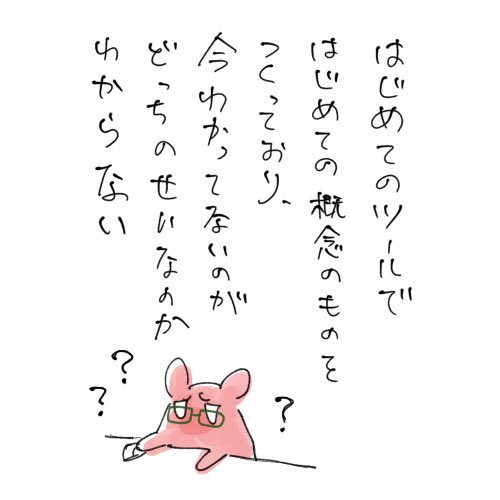 はじめてのツールで
はじめての概念のものを
つくっており、
今わかってないのが
どっちのせいなのか
わからない
?
?
?